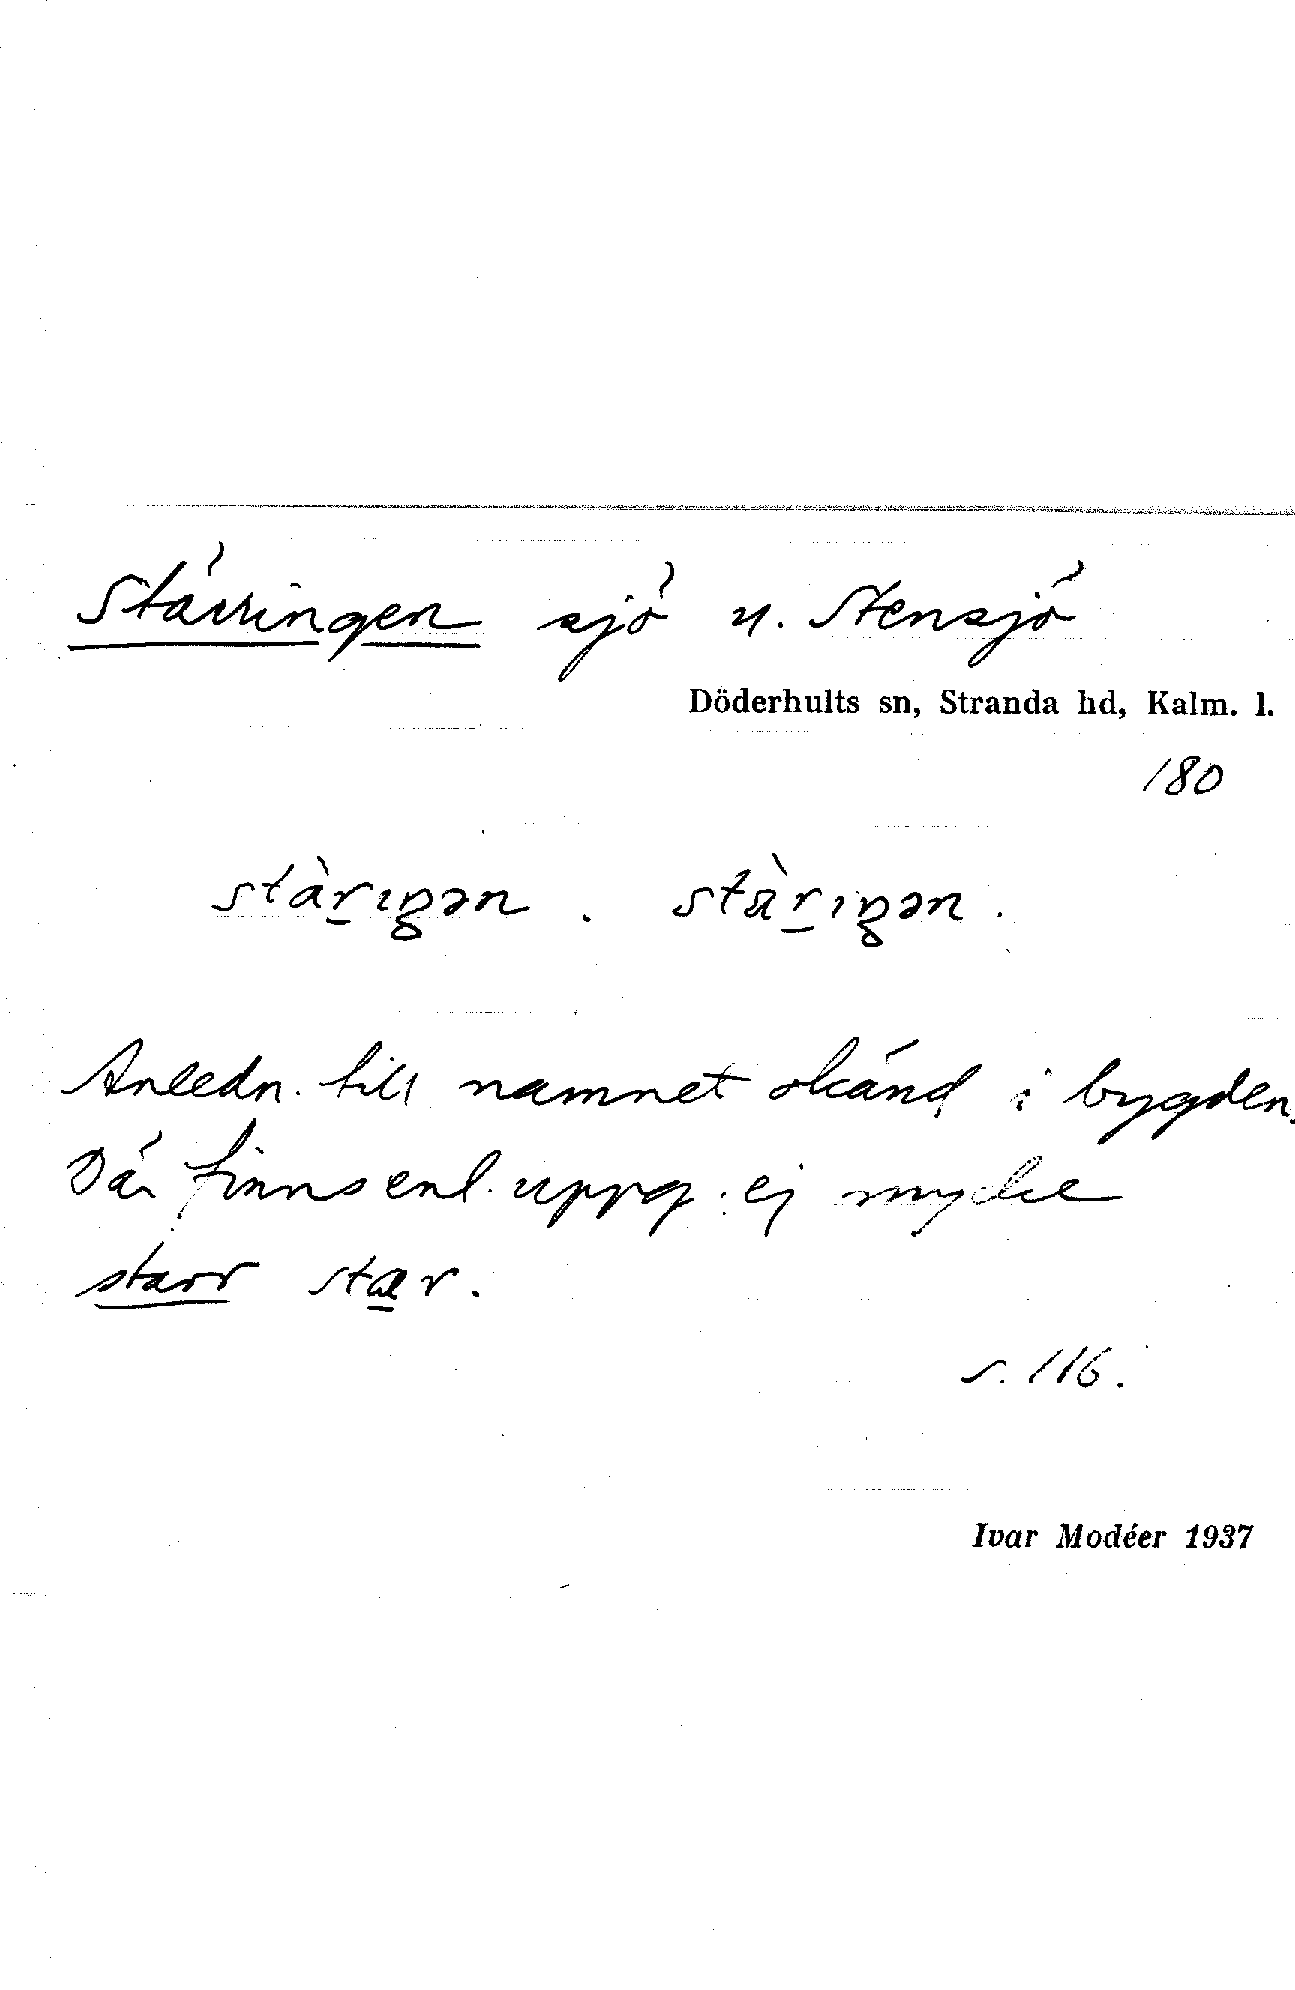 Stärringen sjö u. Stensjö
Döderhults sn, Stranda hd, Kalm. l.
180
stàr̲ıŋən . stàr̲ıŋən .
Anledn. till namnet okänd i bygden.
Där finns enl. uppg. ej mycke
starr stær.
s. 116.
Ivar Modéer 1937